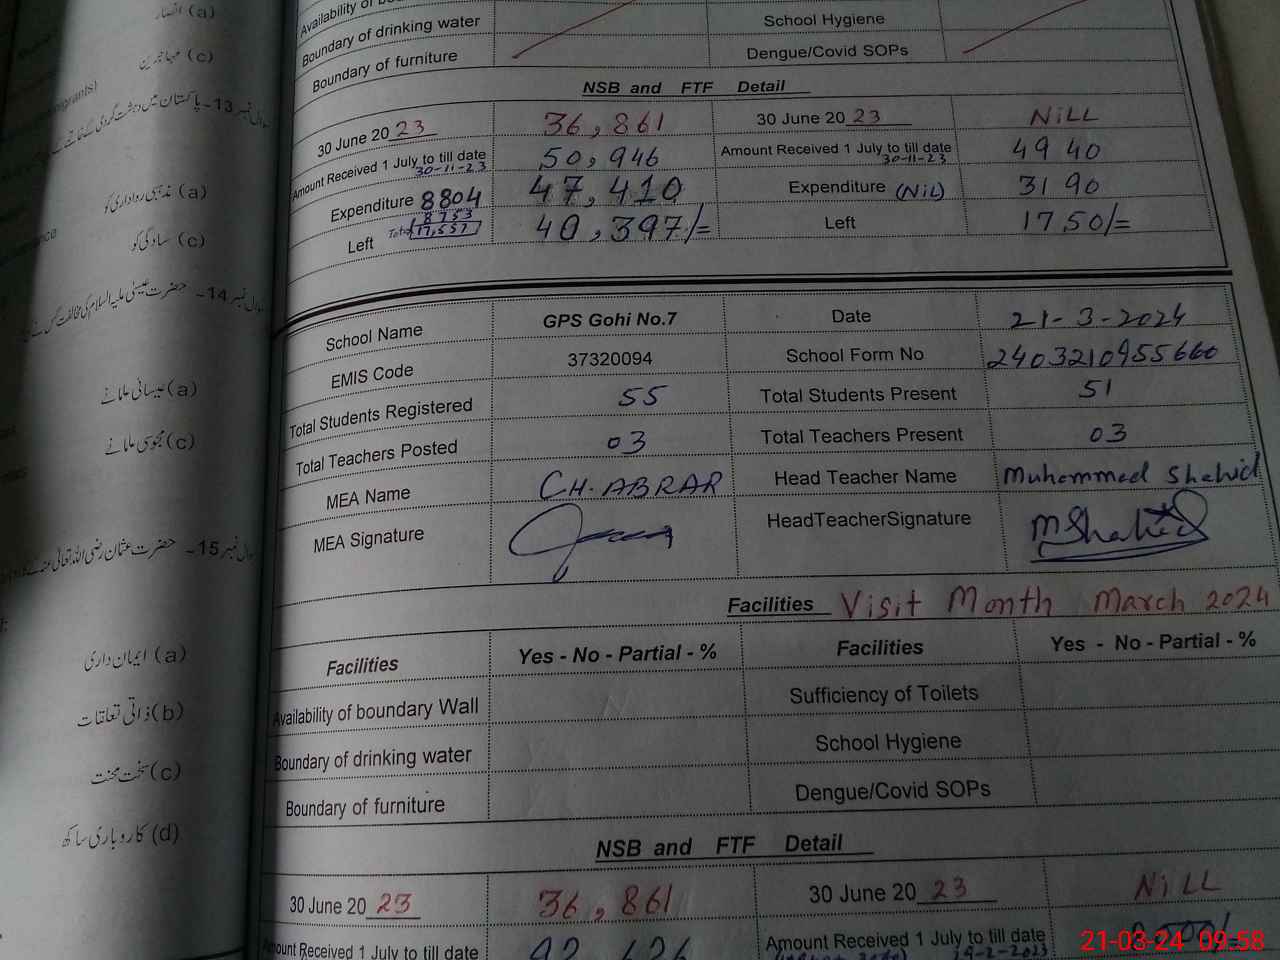 (a) انصار
(c) مہاجرین
migrants)
سوال نمبر 13- پاکستان میں دہشت گردی کے خاتمے کے
(a) مذہبی رواداری کو
(c) سادگی کو
سوال نمبر 14- حضرت عیسیٰ علیہ السلام کی مخالفت کس نے
(a) عیسائی علما نے
(c) مجوسی علما نے
سوال نمبر 15- حضرت عثمان رضی اللہ تعالیٰ عنہ نے
(a) ایمان داری
(b) ذاتی تعلقات
(c) سخت محنت
(d) کاروباری ساکھ
Availability of
Boundary of drinking water School Hygiene
Boundary of furniture Dengue/Covid SOPs
NSB and FTF Detail
30 June 20 23 36,861 30 June 20 23 NiLL
Amount Received 1 July to till date 30-11-23 50,946 Amount Received 1 July to till date 30-11-23 4940
Expenditure 8804 47,410 Expenditure (Nil) 3190
8753
Left Total 17,557 40,397/= Left 1750/=
School Name GPS Gohi No.7 Date 21-3-2024
EMIS Code 37320094 School Form No 2403210955660
Total Students Registered 55 Total Students Present 51
Total Teachers Posted 03 Total Teachers Present 03
MEA Name CH. ABRAR Head Teacher Name Muhammad Shahid
MEA Signature HeadTeacherSignature MShahid
Facilities Visit Month March 2024
Facilities Yes - No - Partial - % Facilities Yes - No - Partial - %
Availability of boundary Wall Sufficiency of Toilets
Boundary of drinking water School Hygiene
Boundary of furniture Dengue/Covid SOPs
NSB and FTF Detail
30 June 20 23 36,861 30 June 20 23 NiLL
Amount Received 1 July to till date Amount Received 1 July to till date
21-03-24 09:58